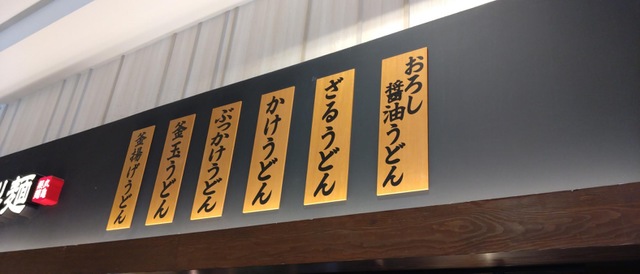 おろし
醤油うどん
ざるうどん
かけうどん
ぶっかけうどん
釜玉うどん
釜揚げうどん
麺